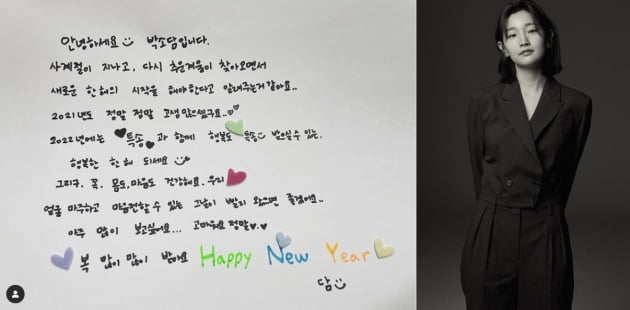 안녕하세요 박소담입니다.
사계절이 지나고, 다시 추운겨울이 찾아오면서
새로운 한 해의 시작을 해야한다고 알려주는거같아요..
2021년도 정말 정말 고생 많으셨구요..
2022년에는 특송과 함께 행복도 특송 받으실 수 있는.
행복한 한 해 되세요
그리구. 꼭. 몸도.마음도 건강해요. 우리
얼굴 마주하고 마음전할 수 있는 그날이 빨리 왔으면 좋겠어요..
아주 많이 보고싶어요... 고마워요 정말
복 많이 많이 받아요 Happy New Year
담